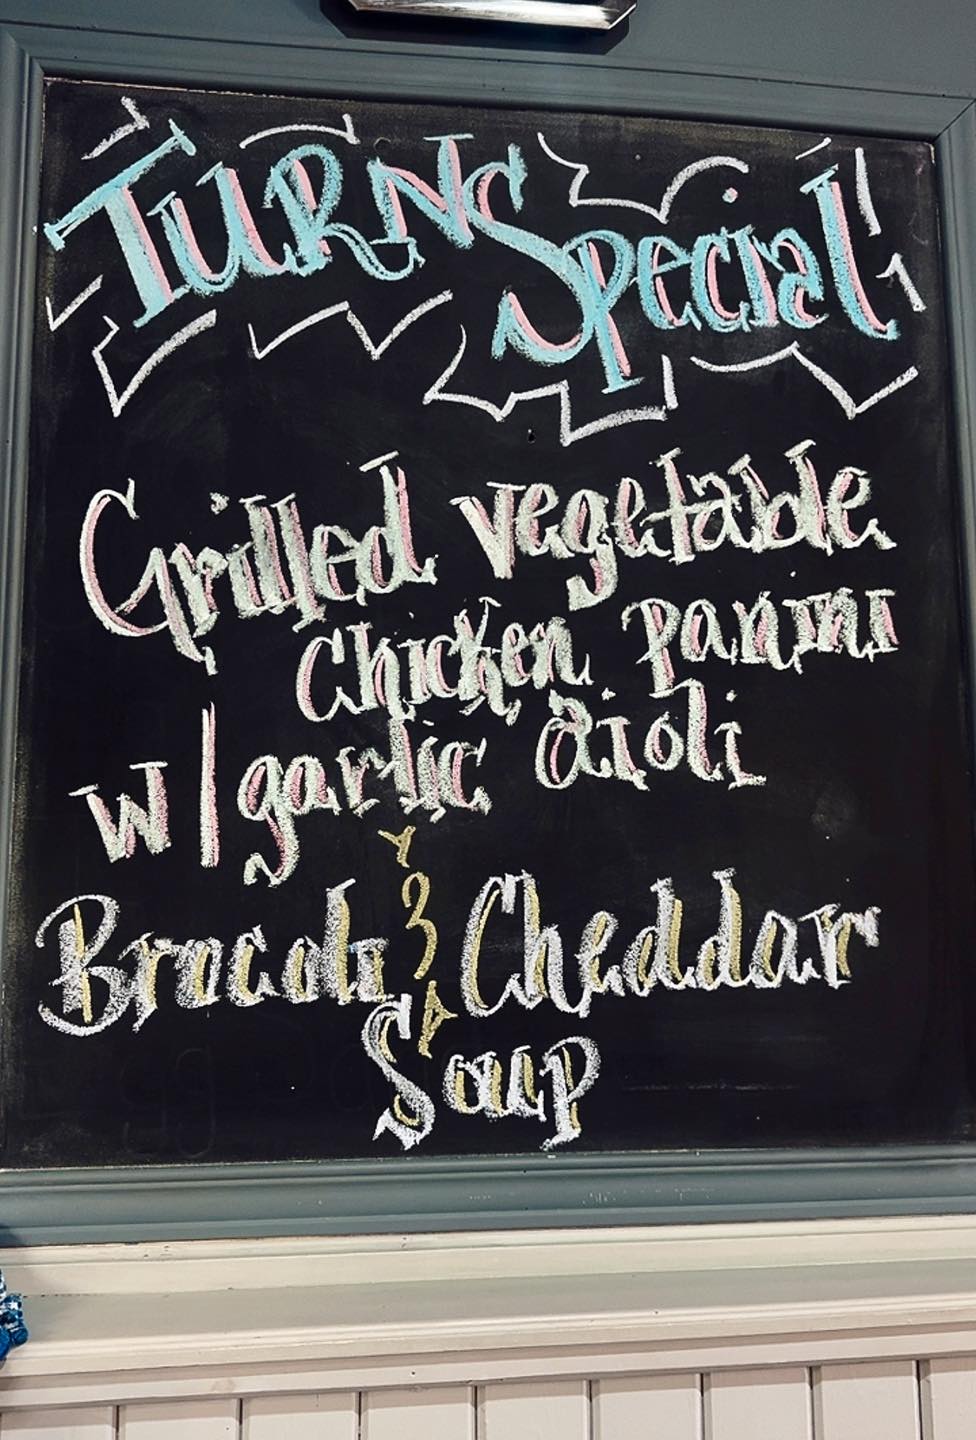 TURNS Special
Grilled vegetable
Chicken panini
w/garlic aioli
Brocoli & Cheddar
Soup